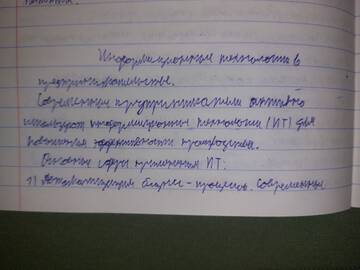 Информационные технологии в
предпринимательстве.
Современные предприниматели активно
используют информационные технологии (ИТ) для
повышения эффективности
Основные сферы применения ИТ:
1) Автоматизация бизнес-процессов. Современные